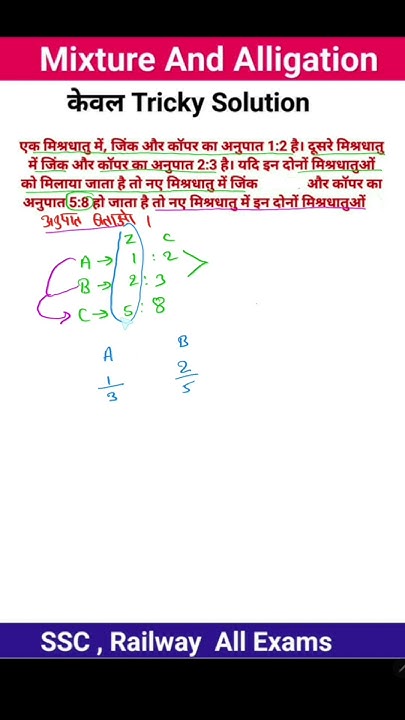 Mixture And Alligation
केवल Tricky Solution
एक मिश्रधातु में, जिंक और कॉपर का अनुपात 1:2 है। दूसरे मिश्रधातु
में जिंक और कॉपर का अनुपात 2:3 है। यदि इन दोनों मिश्रधातुओं
को मिलाया जाता है तो नए मिश्रधातु में जिंक और कॉपर का
अनुपात 5:8 हो जाता है तो नए मिश्रधातु में इन दोनों मिश्रधातुओं
अनुपात बताओ ।
Z C
A → 1 : 2
B → 2 : 3
C → 5 : 8
A B
1/3 2/5
SSC , Railway All Exams